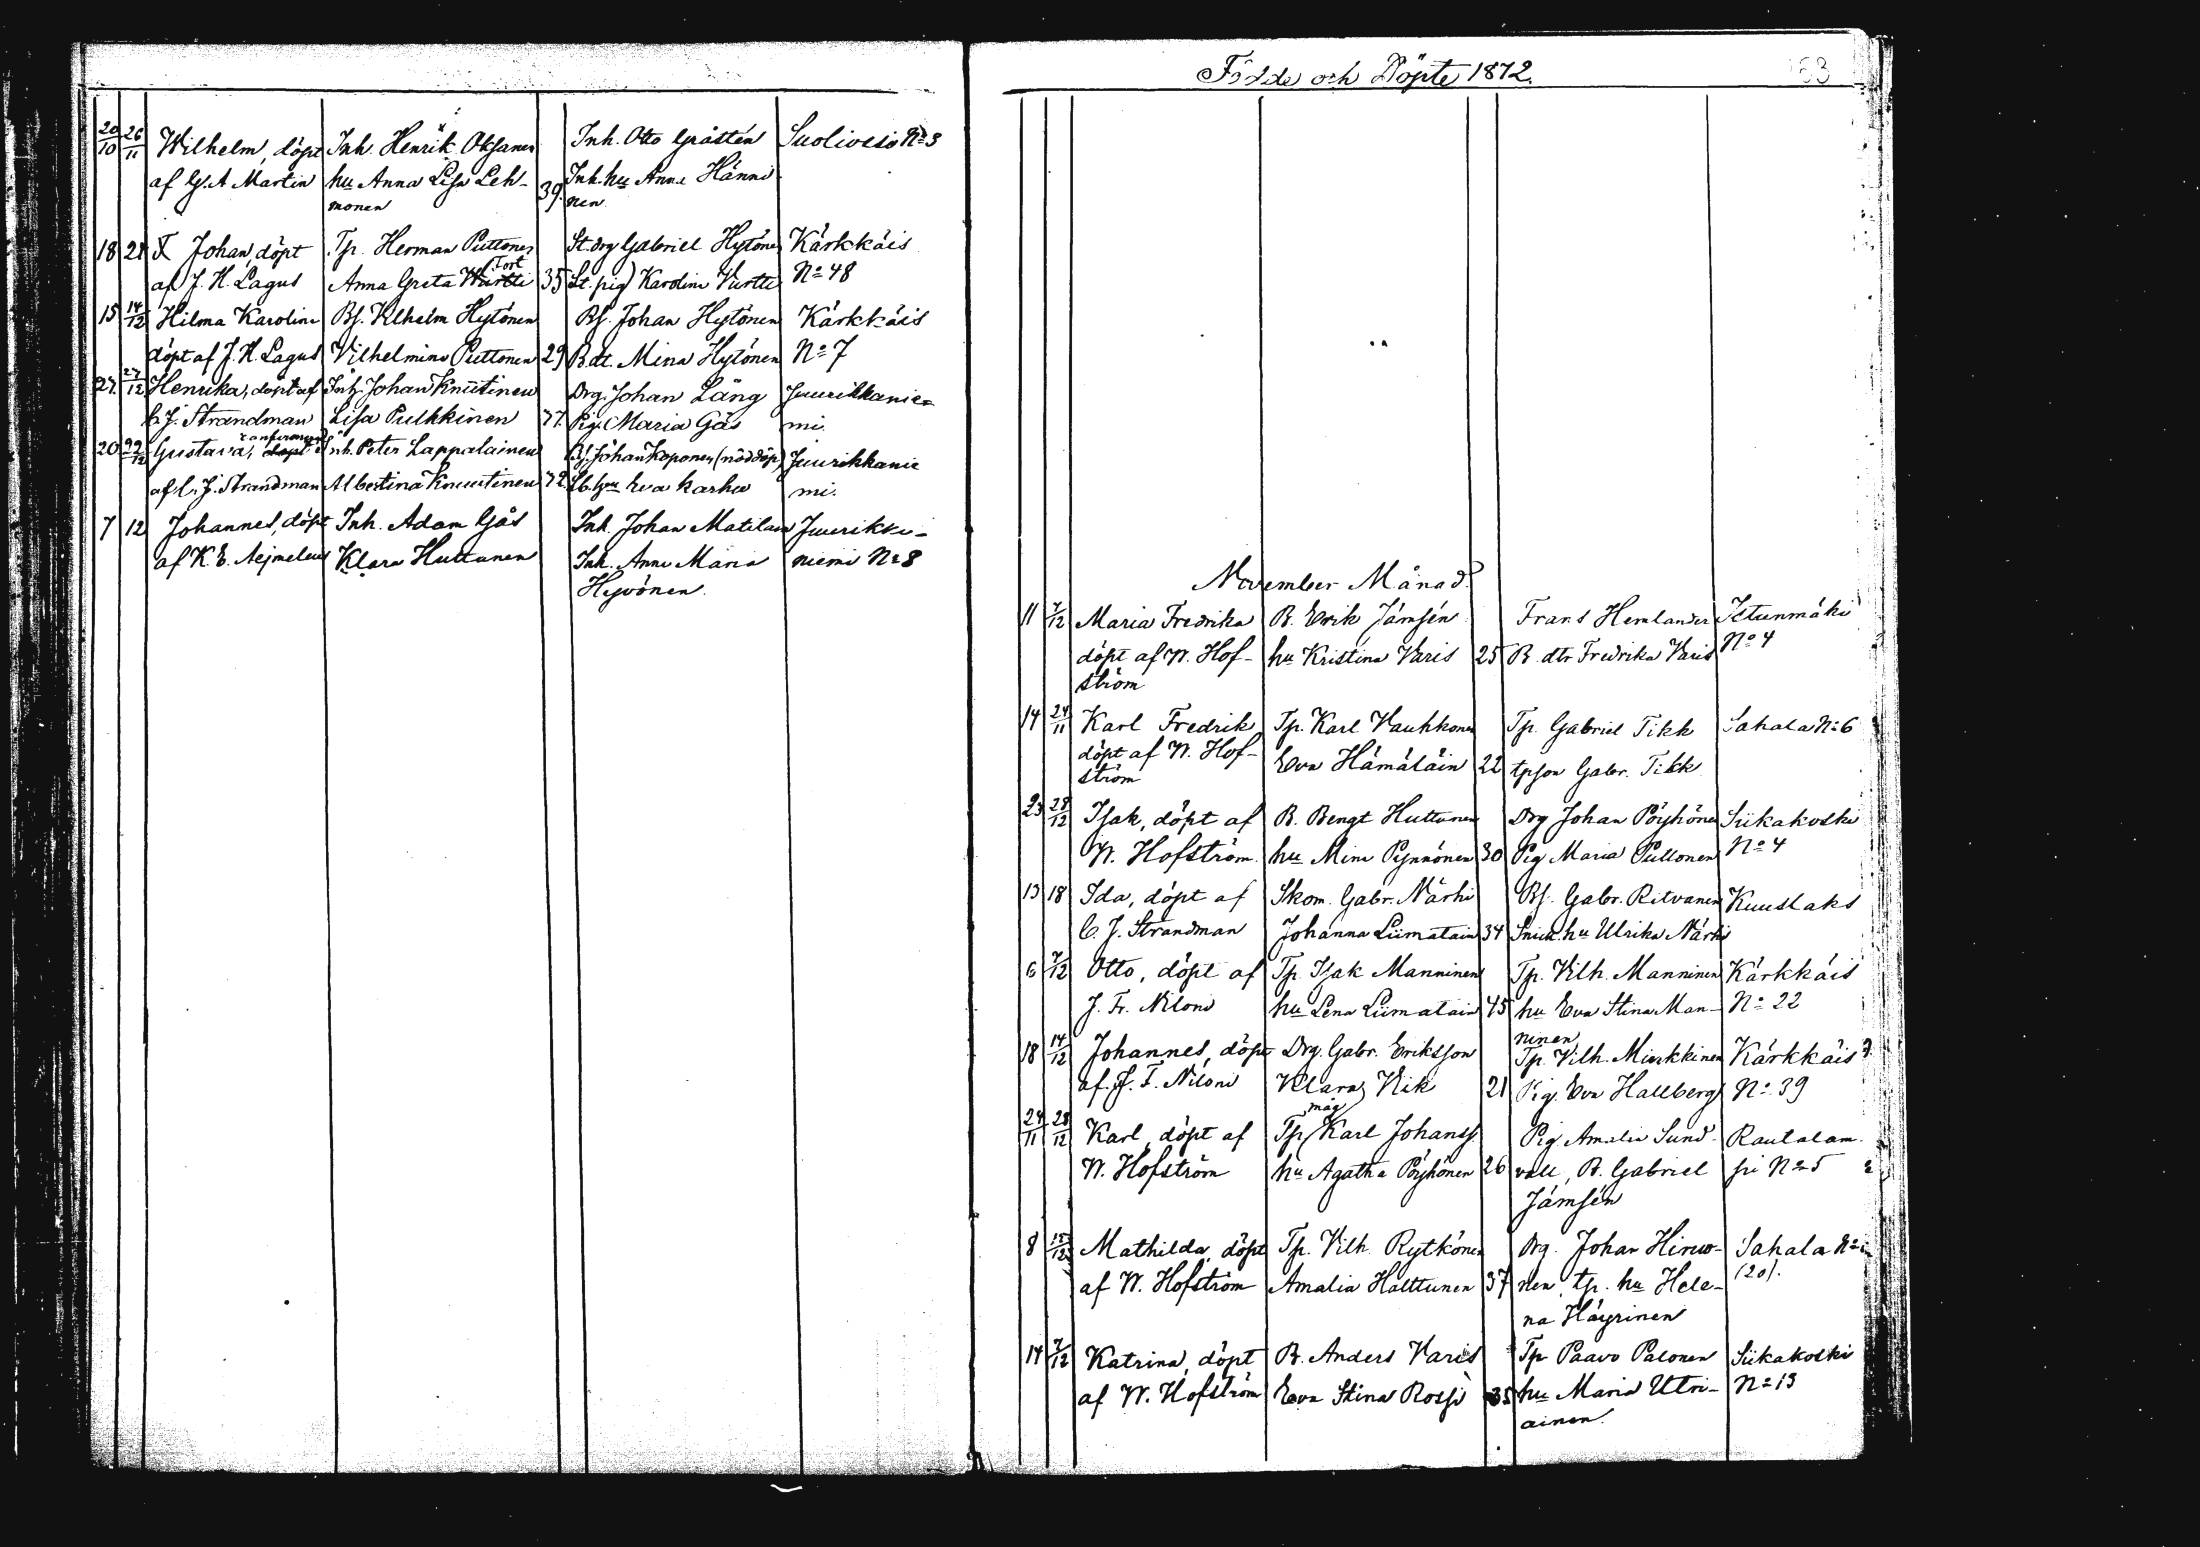 20/10 26/11 Wilhelm, döpt Inh. Henrik Oksanen Inh. Otto Gråstén Suolivesi No 3
af G. A Martin hu Anna Lisa Leh- 39. Inh. hu Anna Hänni-
monen nen
18 21 X Johan, döpt Tp. Herman Puttonen St. drg Gabriel Hytönen Kärkkäis
af J. H. Lagus Anna Greta Tort 35 St. pig Karolina Vurtti No 48
15 14/12 Hilma Karolina Bs. Vilhelm Hytönen Bs. Johan Hytönen Kärkkäis
döpt af J. H. Lagus Vilhelmina Puttonen 29 B. dt. Mina Hytönen No 7
27. 27/12 Henrika, döpt af Inh. Johan Knuutinen Drg. Johan Läng Juurikkanie-
C. J. Strandman Lisa Pulkkinen 77. Pig. Maria Gås mi.
20 22/12 Gustava, döpt Inh. Peter Lappalainen Bs. Johan Koponen (nöddöp) Juurikkanie
af C. J. Strandman Albertina Knuutinen 72. Eva Karhu mi.
7 12 Johannes, döpt Inh. Adam Gås Inh. Johan Matilain Juurikka-
af K. E. Aejmelaeus Klara Huttunen Inh. Anna Maria niemi No 8
Hyvönen.
Födde och Döpte 1872. 163
November Månad.
11 7/12 Maria Fredrika B. Erik Jämsén Frans Hemlander Istunmäki
döpt af W. Hof- hu Kristina Varis 25 B. dtr Fredrika Varis No 4
ström
14 24/11 Karl Fredrik Tp. Karl Vauhkonen Tp. Gabriel Tikk Sahala No 6
döpt af W. Hof- Eva Hämäläin 22 tpson Gabr. Tikk
ström
23 28/12 Isak, döpt af B. Bengt Huttunen Drg Johan Pöyhönen Siikakoski
W. Hofström. hu Mina Pynnönen 30 Pig Maria Puttonen No 4
13 18 Ida, döpt af Skom. Gabr. Närhi Bs. Gabr. Ritvanen Kuuslaks
C. J. Strandman Johanna Liimatain 34 Snick. hu Ulrika Närhi
6 7/12 Otto, döpt af Tp. Isak Manninen Tp. Vilh. Manninen Kärkkäis
J. Fr. Niloni hu Lena Liimatain 45 hu Eva Stina Man- No 22
ninen
18 14/12 Johannes, döpt Drg. Gabr. Eriksson Tp. Vilh. Minkkinen Kärkkäis
af J. F. Niloni Klara Vik 21 Pig. Eva Hallberg No 39
24/11 28/12 Karl, döpt af Tp måg Karl Johanss. Pig Amalia Sund- Rautalam-
W. Hofström hu Agatha Pöyhönen 26 vall, B. Gabriel pi No 5
Jämsén
8 15/12 Mathilda, döpt Tp. Vilh. Rytkönen Drg. Johan Hirvo- Sahala No
af W. Hofström Amalia Halttunen 37 nen, tp. hu Hele- (20).
na Häyrinen
14 7/12 Katrina, döpt B. Anders Varis Tp Paavo Palonen Siikakoski
af W. Hofström Eva Stina Rossi 35 hu Maria Utri- No 13
ainen.